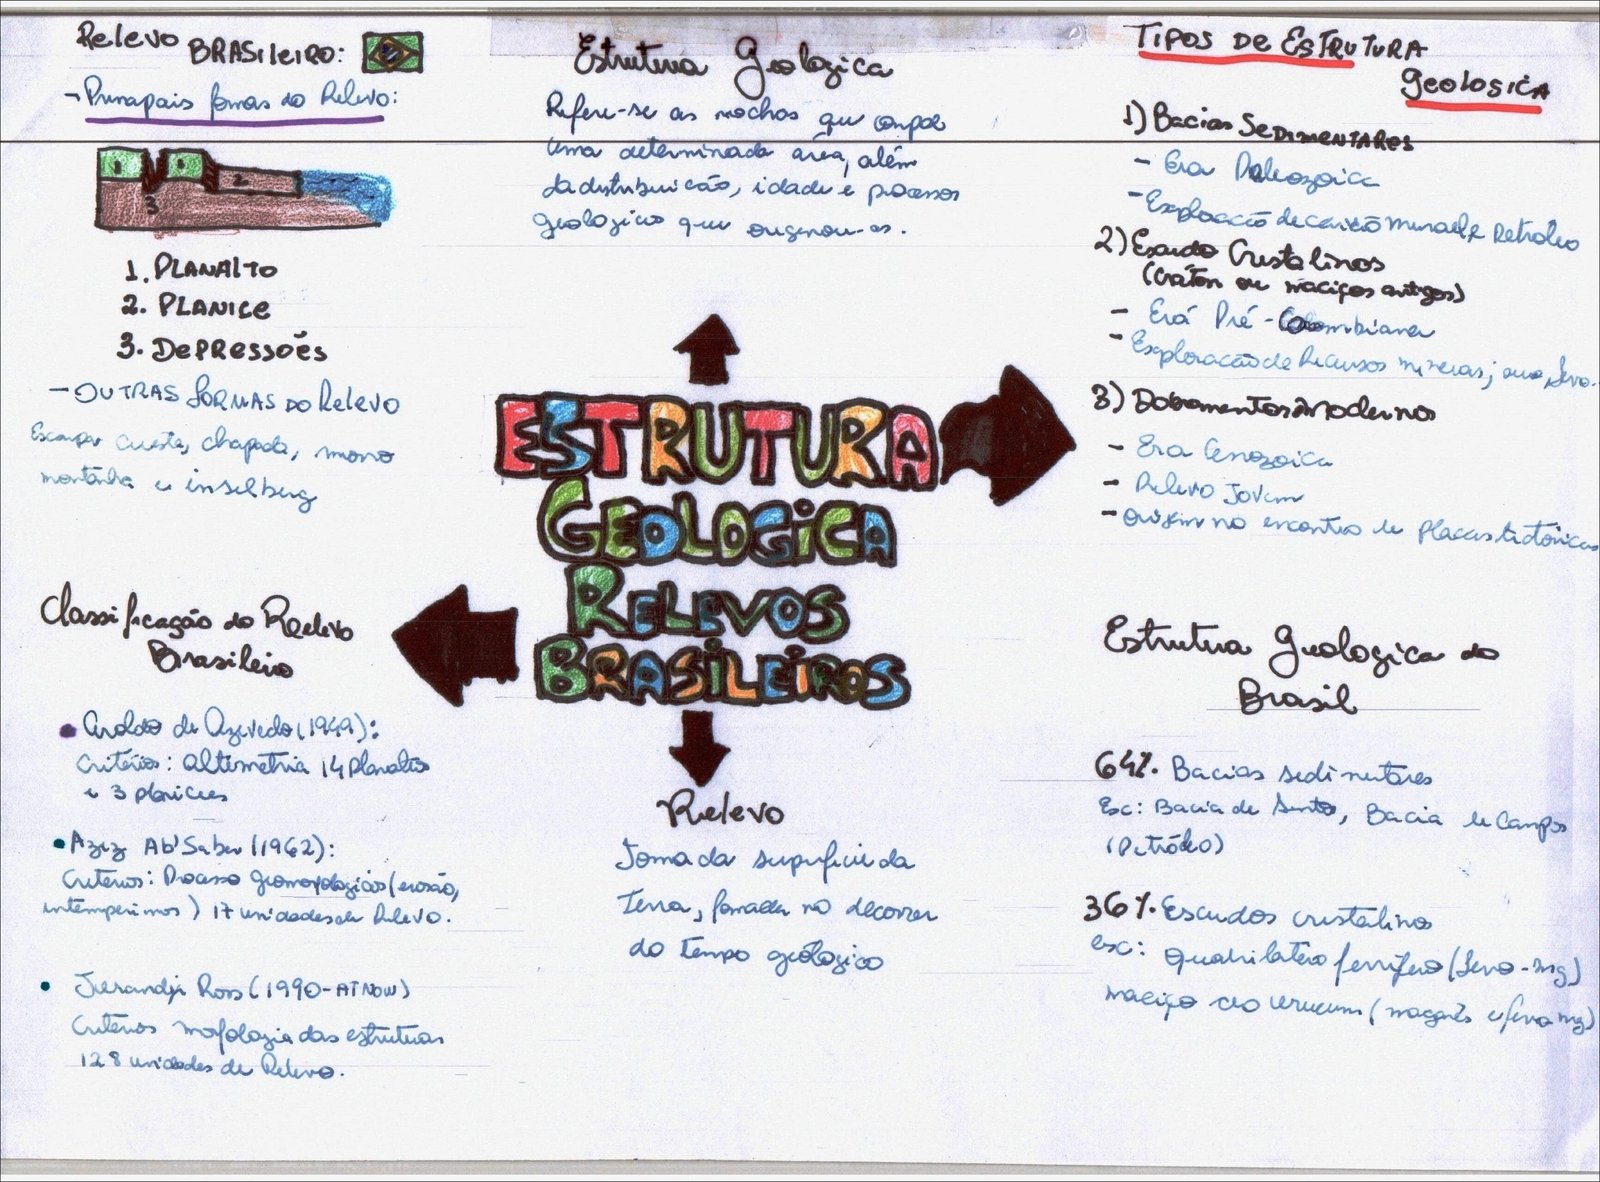 Relevo BRASILEIRO:
- Principais formas do Relevo:
1
1
2
3
1. PLANALTO
2. PLANICE
3. DEPRESSÕES
- OUTRAS FORMAS DO Relevo
Escarpa cuesta, chapada, morro
montanha e inselberg
Estrutura Geologica
Refere-se as rochas que compoe
uma determinada área, além
da distribuicão, idade e processos
geologicos que originou-as.
TIPOS DE ESTRUTURA
geologica
1) Bacias SEDIMENTARES
- Era Paleozoica
- Exploracão de carvão mineral e Petroleo
2) Escudo Cristalinos
(Cráton ou maciços antigos)
- Erá Pré-Colombiana
- Exploracão de Recursos minerais; ouro, ferro.
3) Dobramentos Modernos
- Era Cenozoica
- Relevo Jovem
- Origem no encontro de placas tectônicas
ESTRUTURA
GEOLOGICA
RELEVOS
BRASILEIROS
Classificação do Relevo
Brasileiro
• Aroldo de Azevedo (1949):
Critérios: altimetria 14 planaltos
e 3 planicies
• Aziz Ab'Saber (1962):
Criterios: Processo geomorfologicos (erosão,
intemperismos) 17 unidades de Relevo.
• Jurandir Ross (1990-ATNOW)
Critérios morfologia das estruturas
128 unidades de Relevo.
Relevo
Forma da superficie da
Terra, formada no decorrer
do tempo geólogico
Estrutura Geologica do
Brasil
64%. Bacias sedimentares
Ex: Bacia de Santos, Bacia de Campos
(Petróleo)
36%. Escudos cristalinos
ex: quadrilatero ferrífero (ferro-mg)
maciço do urucum (maganês e ferro mg)